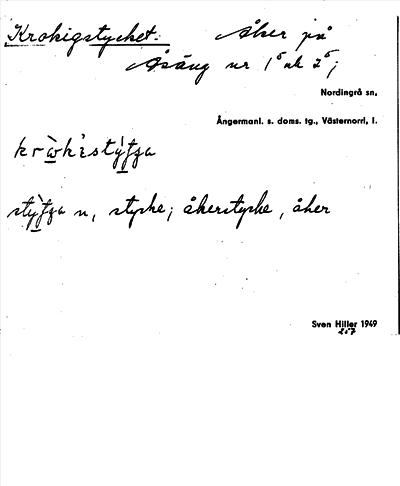 Krokigstycket. Åker på
Åsäng nr 1⁵ och 2⁵;
Nordingrå sn.
Ångermanl. s. doms. tg., Västernorrl. l.
styche; åkerstycke, åker
Sven Hiller 1949
257